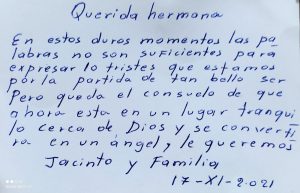 Querida hermana
En estos duros momentos las pa
labras no son suficientes para
expresar lo tristes que estamos
por la partida de tan bello ser
Pero queda el consuelo de que
ahora esta en un lugar tranqui
lo cerca de Dios y se converti
ra en un ángel, le queremos
Jacinto y Familia
17-XI-2.021